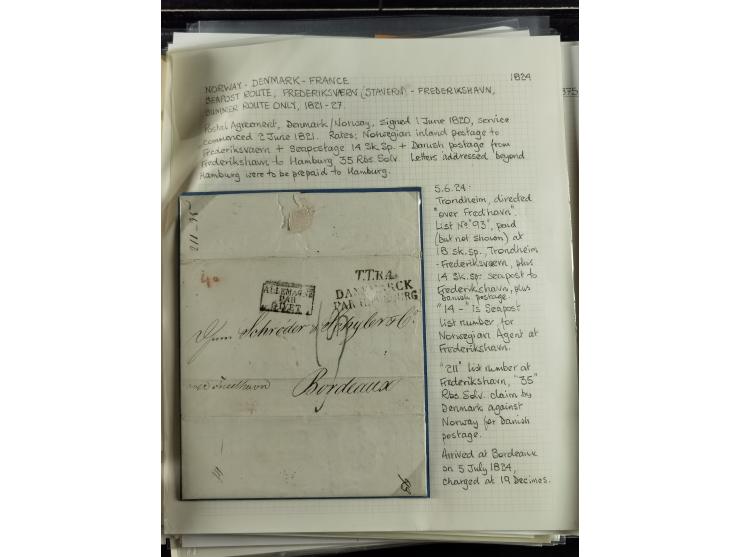 1824
NORWAY - DENMARK - FRANCE
SEAPOST ROUTE, FREDERIKSVÆRN (STAVERN) - FREDERIKSHAVN,
SUMMER ROUTE ONLY, 1821-27.
Postal Agreement, Denmark/Norway, signed 1 June 1820, service
commenced 2 June 1821. Rates; Norwegian inland postage to
Frederiksvaern + Seapostage 14 Sk.Sp. + Danish postage from
Frederikshavn to Hamburg 35 Rbs. Solv. Letters addressed beyond
Hamburg were to be prepaid to Hamburg.
5.6.24:
Trondheim, directed
"over Fredhavn".
List No. "93", paid
(but not shown) at
18 sk.sp., Trondheim
-Frederiksvaern, plus
14 Sk.sp. seapost to
Frederikshavn, plus
Danish postage.
"14 -" is Seapost
list number for
Norwegian Agent at
Frederikshavn.
"211" list number at
Frederikshavn, "35"
Rbs. Solv. claim by
Denmark against
Norway for Danish
postage.
Arrived at Bordeaux
on 5 July 1824,
charged at 19 Decimes.
211-35
T.T.R.4.
DANEMARCK
PAR HAMBOURG
ALLEMAGNE
PAR
GIVET
Herrn Schröder & Schyler & Co.
over Friedhavn
Bordeaux
375